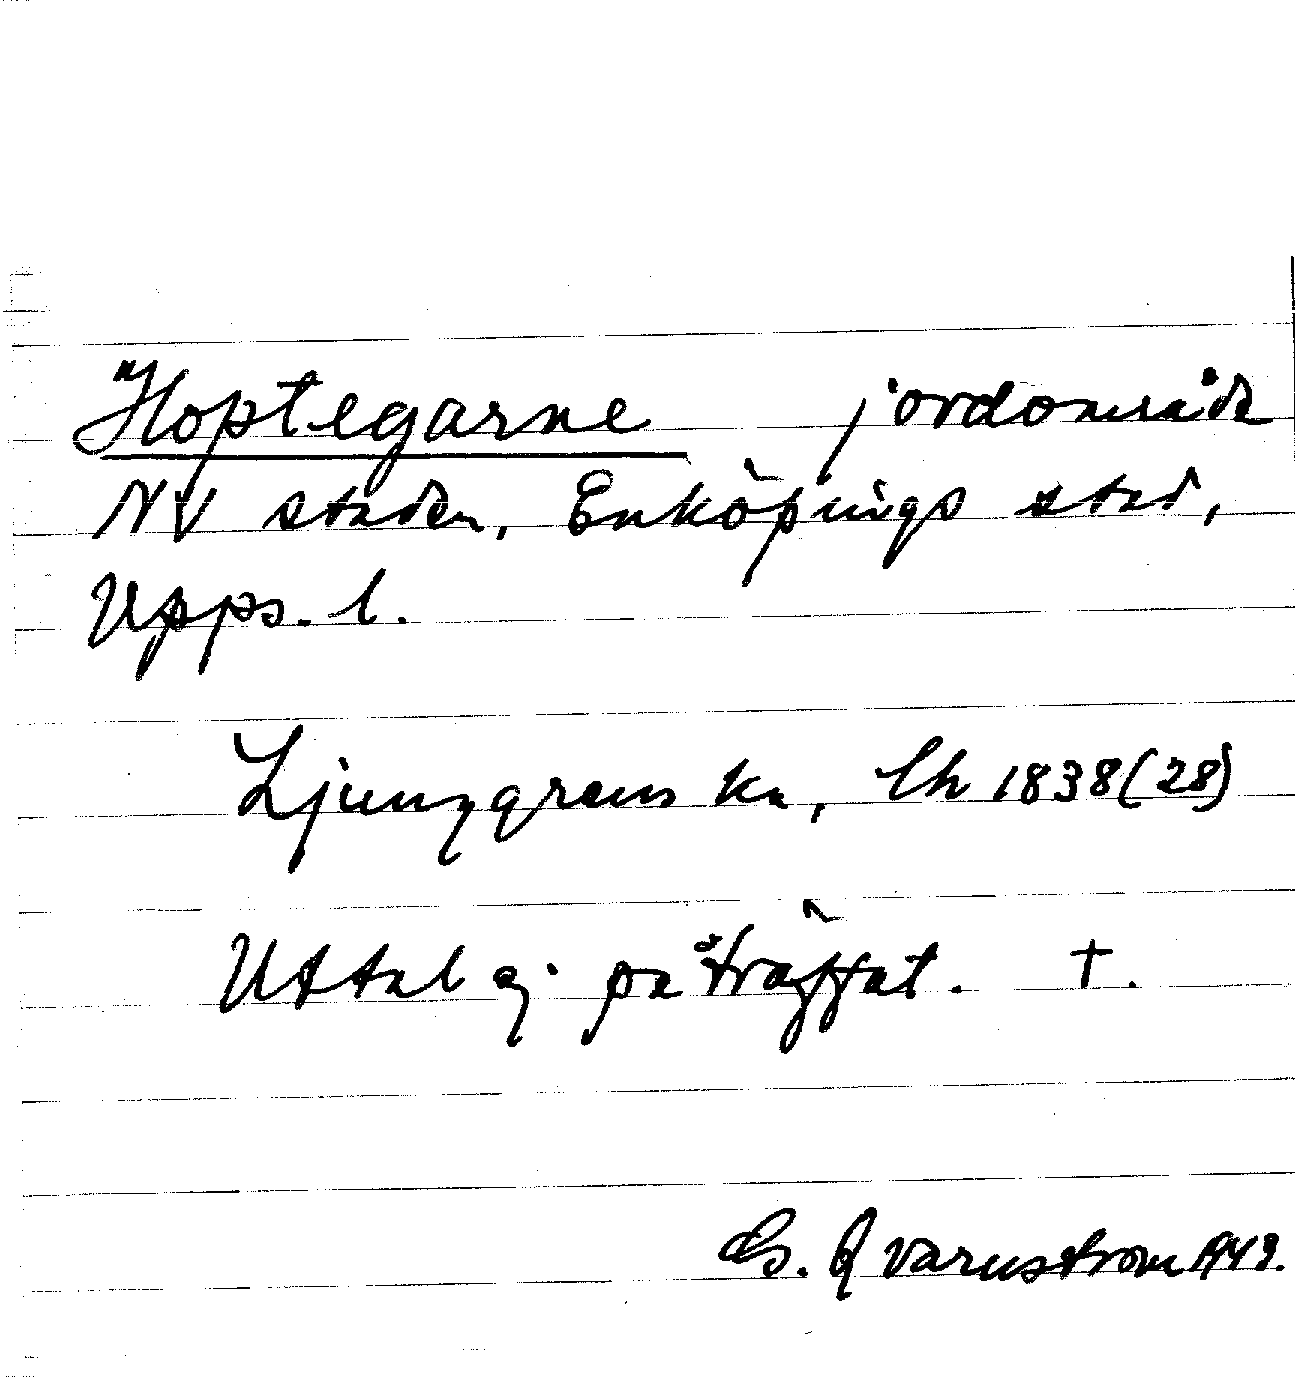 "Hoptegarne jordområde
NV staden, Enköpings stad,
Upps. l.
Ljunggrens ka, Ch 1838(28)
Uttal ej påträffat. †.
G. Qvarnström 1949.